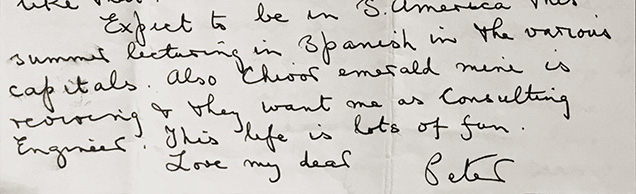 like that.
Expect to be in S. America this
summer lecturing in Spanish in the various
capitals. Also Chivor emerald mine is
reviving & they want me as Consulting
Engineer. This life is lots of fun.
Love my dear Peter